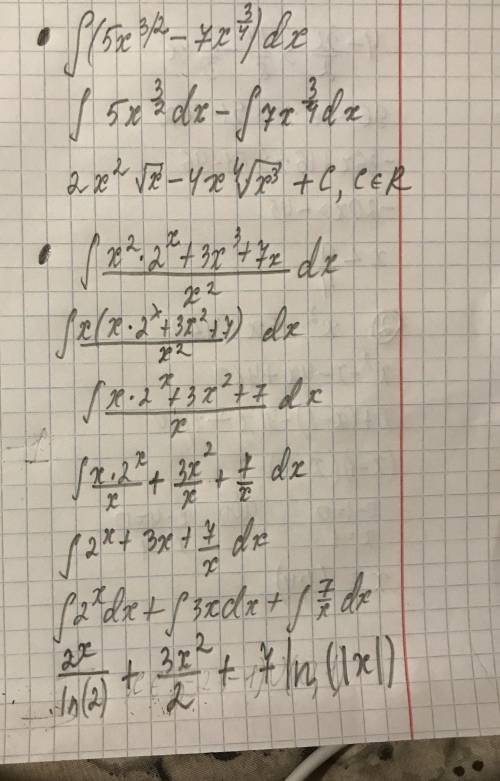 • ∫(5x^{3/2} − 7x^{3/4})dx
∫ 5x^{3/2} dx − ∫ 7x^{3/4} dx
2x² √x − 4x ⁴√x³ + C, C∈R
• ∫ (x² · 2^x + 3x³ + 7x)/x² dx
∫ x(x · 2^x + 3x² + 7)/x² dx
∫ (x · 2^x + 3x² + 7)/x dx
∫ (x · 2^x)/x + 3x²/x + 7/x dx
∫ 2^x + 3x + 7/x dx
∫ 2^x dx + ∫ 3x dx + ∫ 7/x dx
2^x/ln(2) + 3x²/2 + 7 ln(|x|)